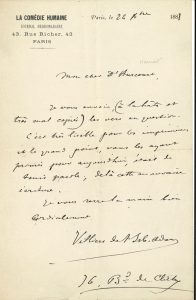 LA COMÉDIE HUMAINE
JOURNAL HEBDOMADAIRE
43, Rue Richer, 43
PARIS
Paris, le 26
Mon cher
Je vous envoie (à la hâte et
très mal copiés) les vers en question.
C'est très lisible pour les imprimeurs
et le grand point, vous les ayant
promis pour aujourd'hui, était de
tenir parole, de là cette mauvaise
écriture.
Je vous serre la main bien
Cordialement
Villiers de l'Isle-Adam
de Clichy